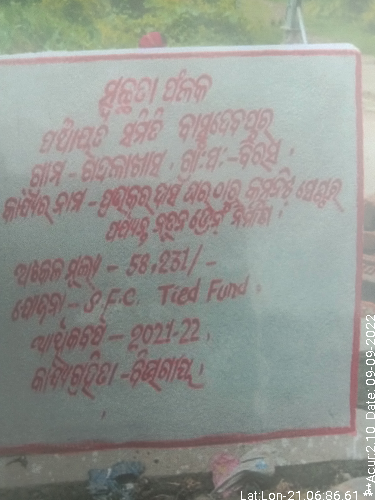 ସ୍ୱଚ୍ଛତା ଫଳକ
ପଞ୍ଚାୟତ ସମିତି ବାସୁଦେବପୁର
ଗ୍ରାମ - ଗହଳାଖାସା, ଗ୍ରା:ପ:-ବିରସ,
କାର୍ଯ୍ୟର ନାମ - ପ୍ରଭାକର ଦାସ ଘର ଠାରୁ କମ୍ୟୁନିଟି ସେଣ୍ଟର
ପର୍ଯ୍ୟନ୍ତ ନୂତନ ଡ୍ରେନ୍ ନିର୍ମାଣ,
ଅଟକଳ ମୂଲ୍ୟ - 58,231/-
ଯୋଜନା - S.F.C. Tied Fund,
ଆର୍ଥିକବର୍ଷ - 2021-22,
କାର୍ଯ୍ୟଗ୍ରହିତା -
Lat:Lon-21.06:86.61
Acur:2.10 Date: 09-09-2022